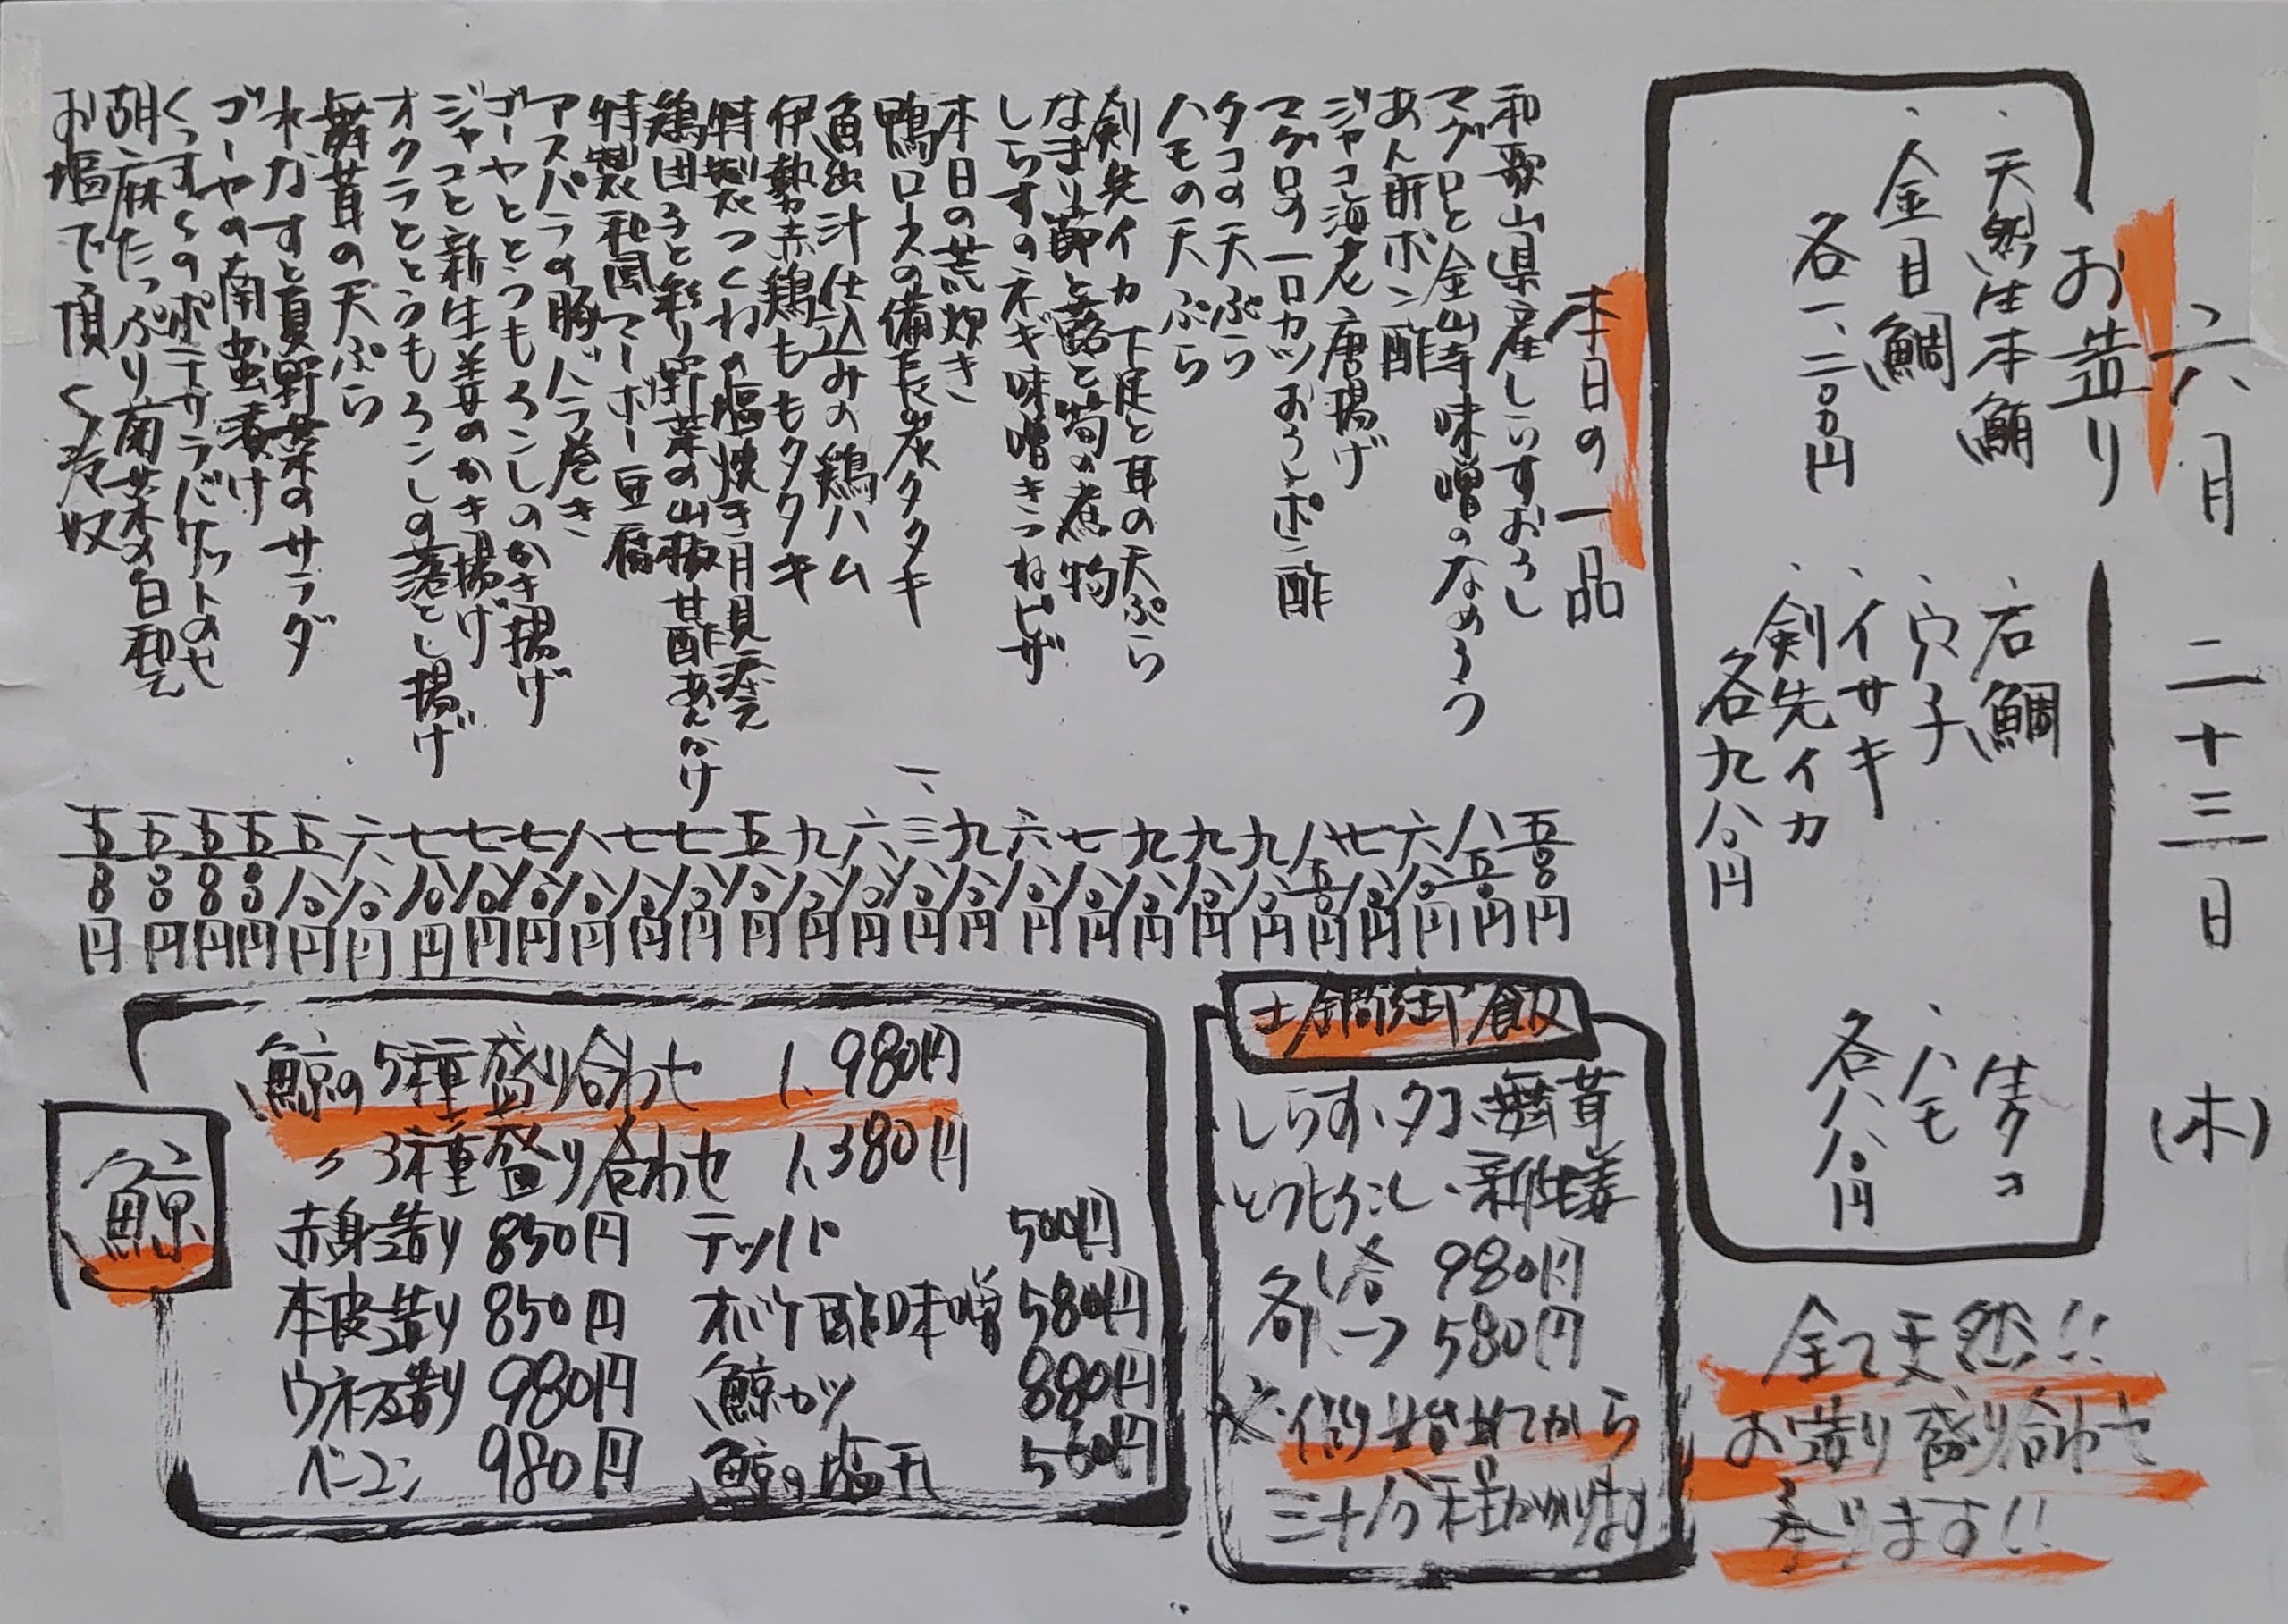 六月二十三日(木)
お造り
・天然生本鮪
・金目鯛
各一、二〇〇円
・石鯛
・穴子
・イサキ
・剣先イカ
各九八〇円
・生タコ
・ハモ
各八八〇円
全て天然!!
お造り盛り合わせ
承ります!!
本日の一品
和歌山県産しらすおろし 五八〇円
マグロと金山寺味噌のなめろう 八五〇円
あん肝ポン酢 六八〇円
ジャコ海老唐揚げ 七八〇円
マグロの一口カツおろしポン酢 八五〇円
タコの天ぷら 九八〇円
ハモの天ぷら 九八〇円
剣先イカ下足と耳の天ぷら 九八〇円
なまり節と蕗と筍の煮物 七八〇円
しらすのネギ味噌きつねピザ 六八〇円
本日の荒炊き 九八〇円
鴨ロースの備長炭タタキ 一、三八〇円
魚出汁仕込みの鶏ハム 六八〇円
伊勢赤鶏ももタタキ 九八〇円
特製つくねの塩焼き月見添え 五八〇円
鶏団子と彩り野菜の山椒甘酢あんかけ 七八〇円
特製和風マーボー豆腐 七八〇円
アスパラの豚バラ巻き 八八〇円
ゴーヤととうもろこしのかき揚げ 七八〇円
ジャコと新生姜のかき揚げ 七八〇円
オクラととうもろこしの落とし揚げ 七八〇円
舞茸の天ぷら 六八〇円
水なすと夏野菜のサラダ 五八〇円
ゴーヤの南蛮漬け 五八〇円
くんすもののポテサラバケットのせ 五八〇円
胡麻たっぷり南菜の白和え 五八〇円
お塩で頂く冷奴 五八〇円
土鍋御飯
しらす、タコ、舞茸
とうもろこし、新生姜
各一合 980円
各ハーフ 580円
※御注文を頂いてから
三十分程かかります
鯨
鯨の5種盛り合わせ 1,980円
〃 3種盛り合わせ 1,380円
赤身造り 850円 テッパ 500円
本皮造り 850円 オバケ酢味噌 580円
ウネス造り 980円 鯨カツ 880円
ベーコン 980円 鯨の塩干 560円